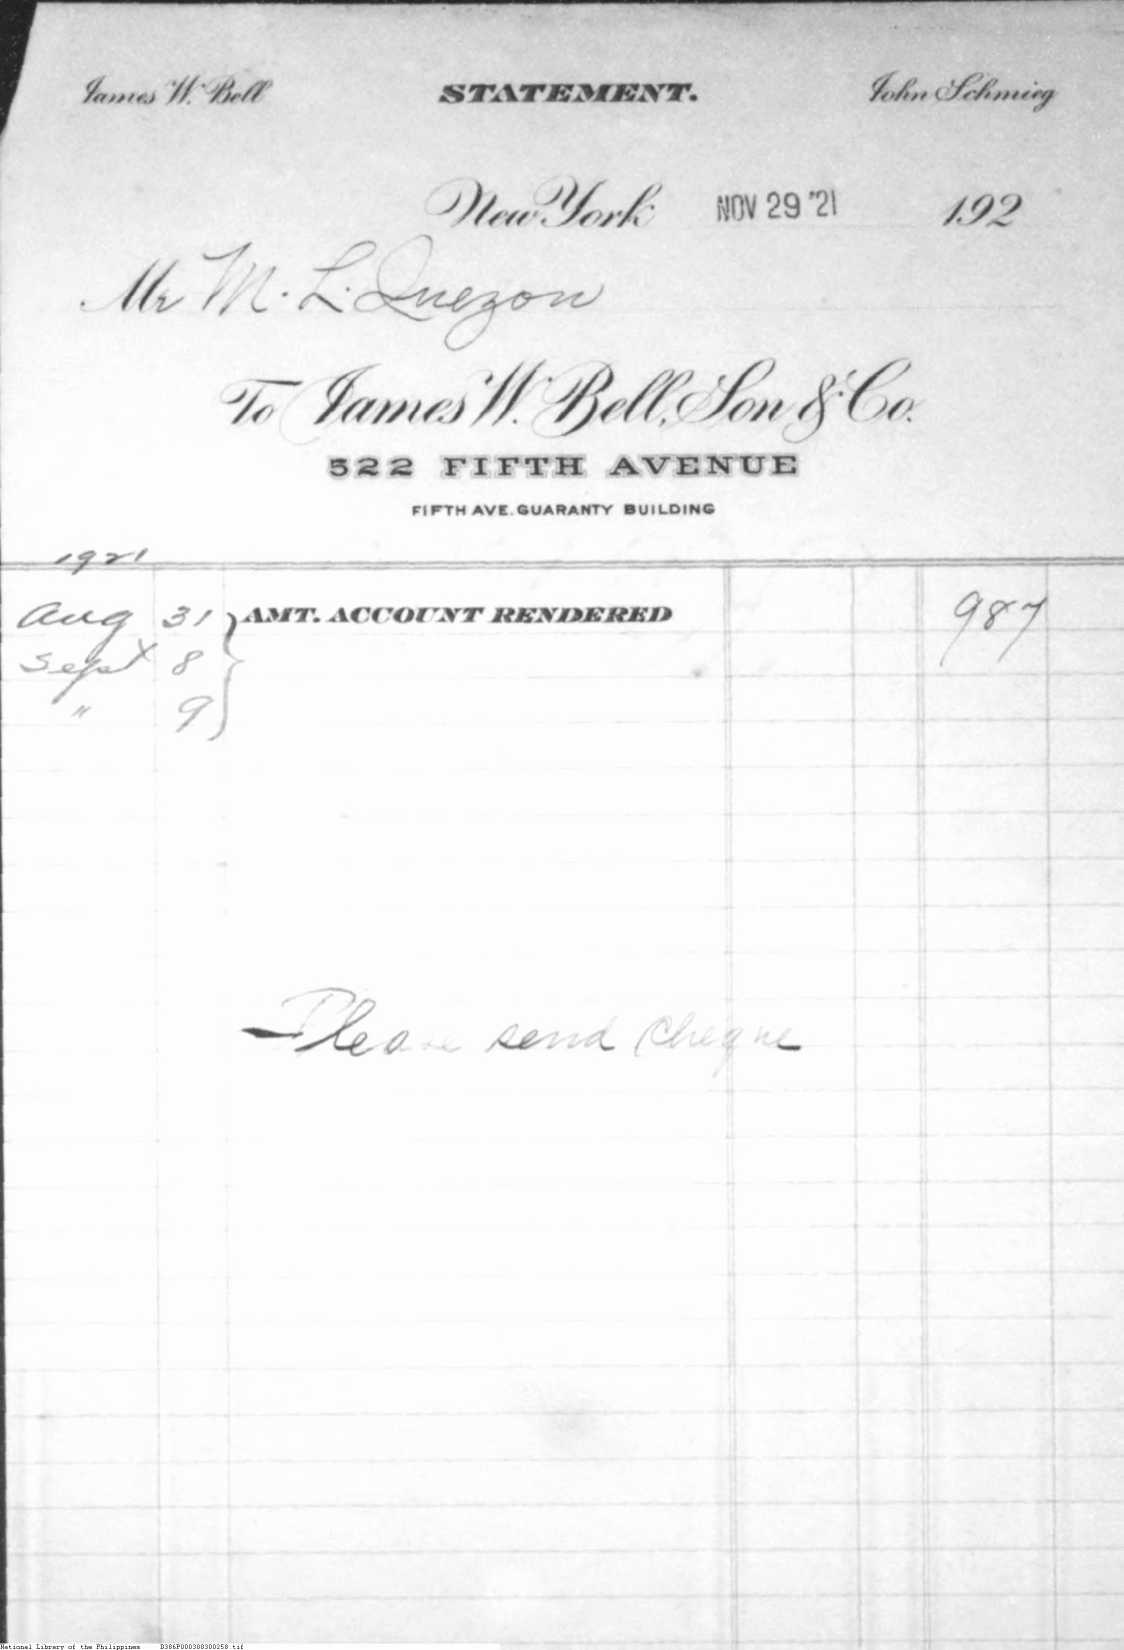 James W. Bell STATEMENT. John Schmieg
New York NOV 29 '21 192
Mr M. L. Quezon
To James W. Bell, Son & Co.
522 FIFTH AVENUE
FIFTH AVE. GUARANTY BUILDING
1921
Aug 31 } AMT. ACCOUNT RENDERED 987
Sept 8
" 9
Please send cheque
National Library of the Philippines B386P000308300258.tif